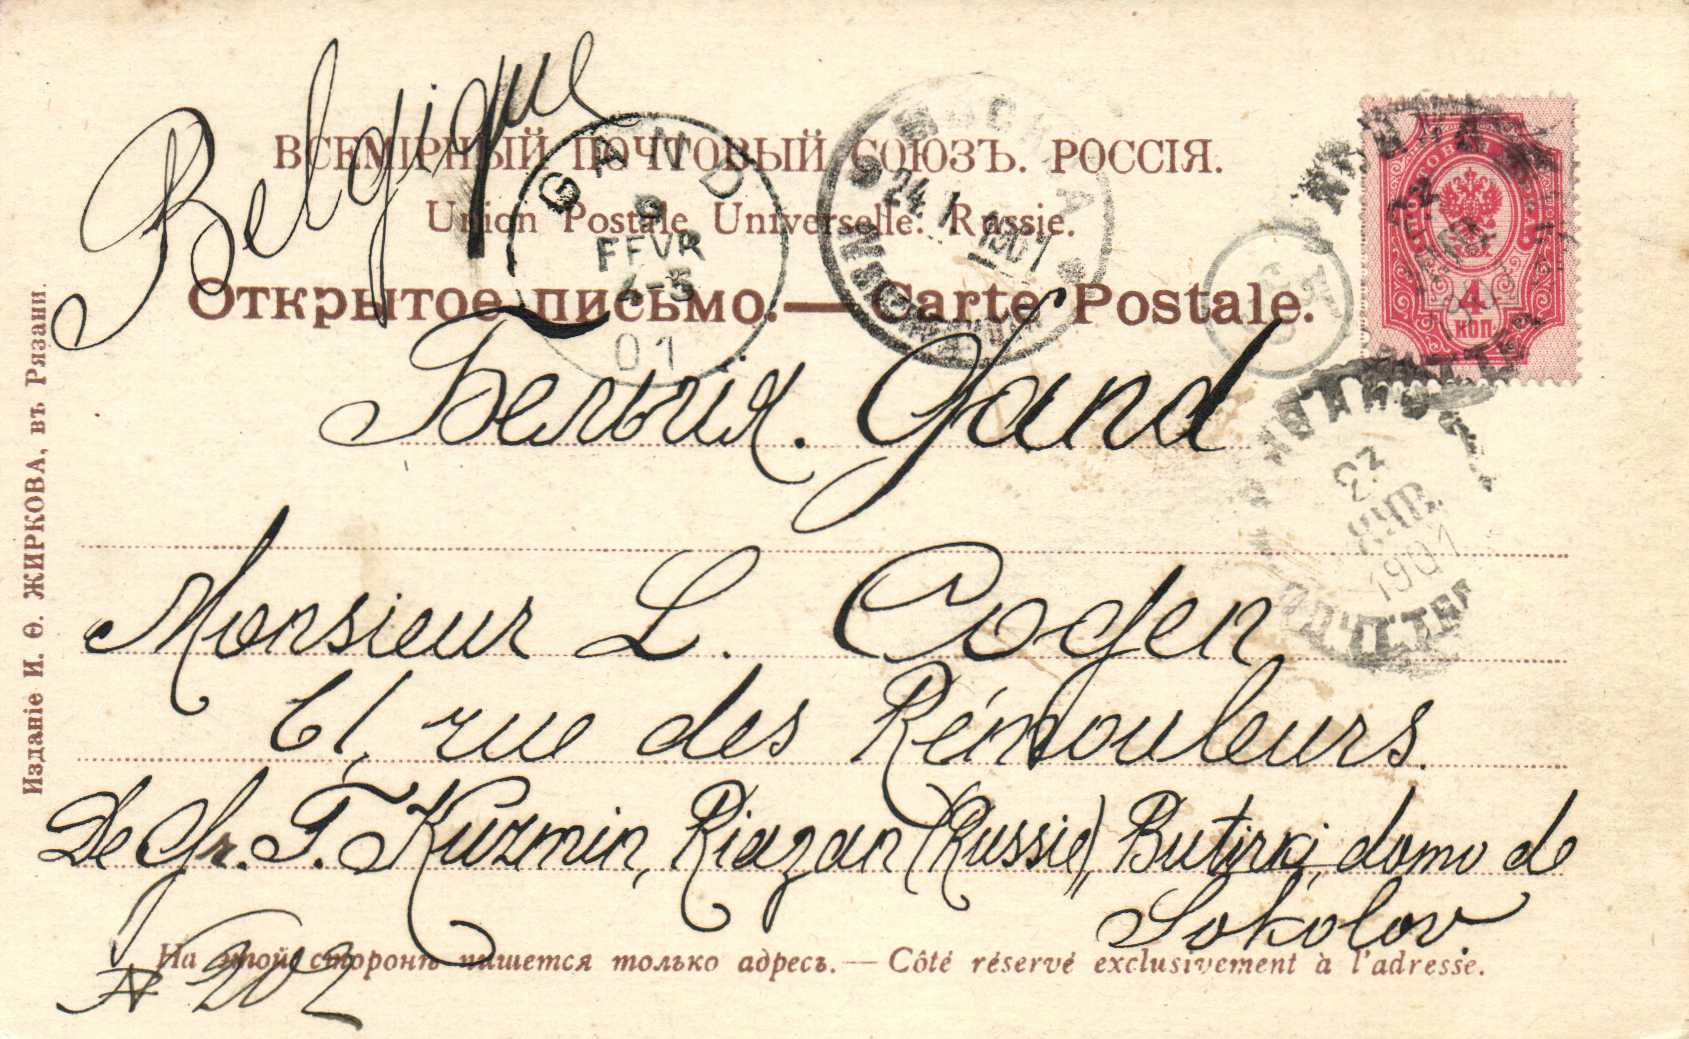 Belgique
ВСЕМІРНЫЙ ПОЧТОВЫЙ СОЮЗЪ. РОССІЯ.
Union Postale Universelle. Russie.
Открытое письмо. — Carte Postale.
GAND
9
FEVR
4-5
01
МОСКВА
24. I
1901
4
КОП
23
ЯНВ.
1901
Бельгія. Gand
Monsieur L. Cogen
61, rue des Rémouleurs.
De Gr. T. Kuzmin, Riazan (Russie), Butirki, domo de
Sokolov
№ 202
На этой сторонѣ пишется только адресъ. — Côté réservé exclusivement à l'adresse.
Изданіе И. Ѳ. ЖИРКОВА, въ Рязани.